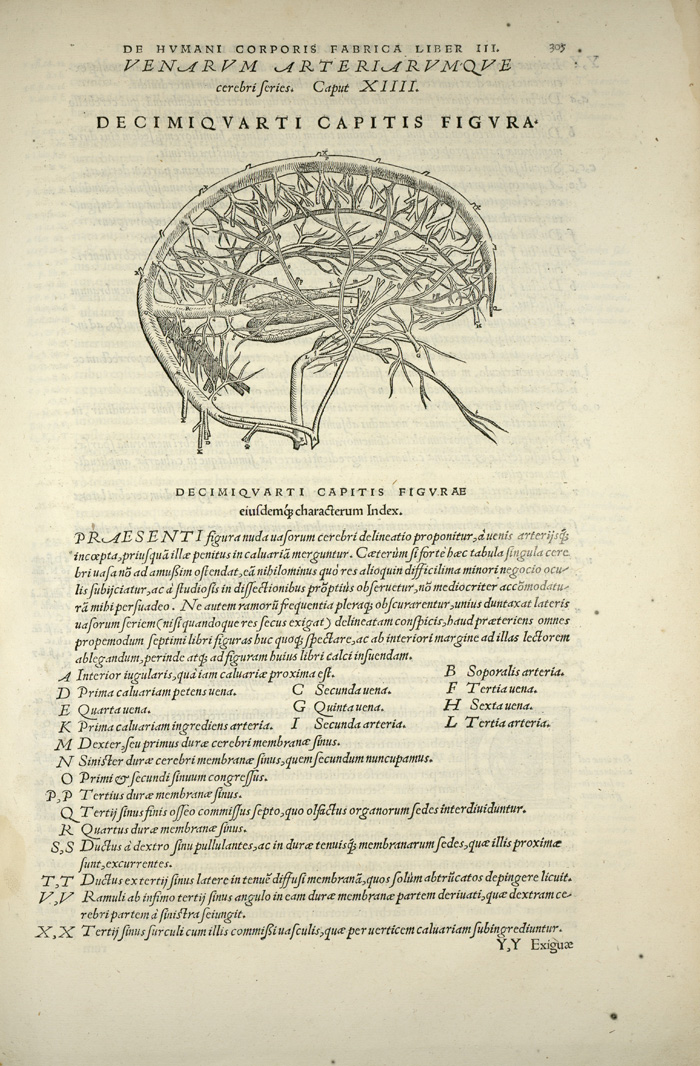 DE HVMANI CORPORIS FABRICA LIBER III. 305
VENARVM ARTERIARVMQVE
cerebri ſeries. Caput XIIII.
DECIMIQVARTI CAPITIS FIGVRA.
DECIMIQVARTI CAPITIS FIGVRAE
eiuſdemq́; characterum Index.
PRAESENTI figura nuda uaſorum cerebri delineatio proponitur, à uenis arterijsq́;
incœpta, priuſquā illæ penitus in caluariā merguntur. Cæterùm ſi forte hæc tabula ſingula cere
bri uaſa nō ad amußim oſtendat, eā nihilominus quò res alioquin difficilima minori negocio ocu-
lis ſubijciatur, ac à ſtudioſis in diſſectionibus prōptiùs obſeruetur, nō mediocriter accōmodatu-
rā mihi perſuadeo. Ne autem ramorū frequentia pleraq; obſcurarentur, unius duntaxat lateris
uaſorum ſeriem (niſi quando que res ſecus exigat) delineatam conſpicis, haud præteriens omnes
propemodum ſeptimi libri figuras huc quoq; ſpectare, ac ab interiori margine ad illas lectorem
ablegandum, perinde atq; ad figuram huius libri calci inſuendam.
A Interior iugularis, quà iam caluariæ proxima eſt. B Soporalis arteria.
D Prima caluariam petens uena. C Secunda uena. F Tertia uena.
E Quarta uena. G Quinta uena. H Sexta uena.
K Prima caluariam ingrediens arteria. I Secunda arteria. L Tertia arteria.
M Dexter, ſeu primus duræ cerebri membranæ ſinus.
N Siniſter duræ cerebri membranæ ſinus, quem ſecundum nuncupamus.
O Primi & ſecundi ſinuum congreſſus.
P,P Tertius duræ membranæ ſinus.
Q Tertij ſinus finis oſſeo commiſſus ſepto, quo olfactus organorum ſedes interdiuiduntur.
R Quartus duræ membranæ ſinus.
S,S Ductus à dextro ſinu pullulantes, ac in duræ tenuisq́; membranarum ſedes, quæ illis proximæ
ſunt, excurrentes.
T,T Ductus ex tertij ſinus latere in tenuē diffuſi membranā, quos ſolùm abtrūcatos depingere licuit.
V,V Ramuli ab infimo tertij ſinus angulo in eam duræ membranæ partem deriuati, quæ dextram ce-
rebri partem à ſiniſtra ſeiungit.
X,X Tertij ſinus ſurculi cum illis commißi uaſculis, quæ per uerticem caluariam ſubingrediuntur.
Y,Y Exiguæ